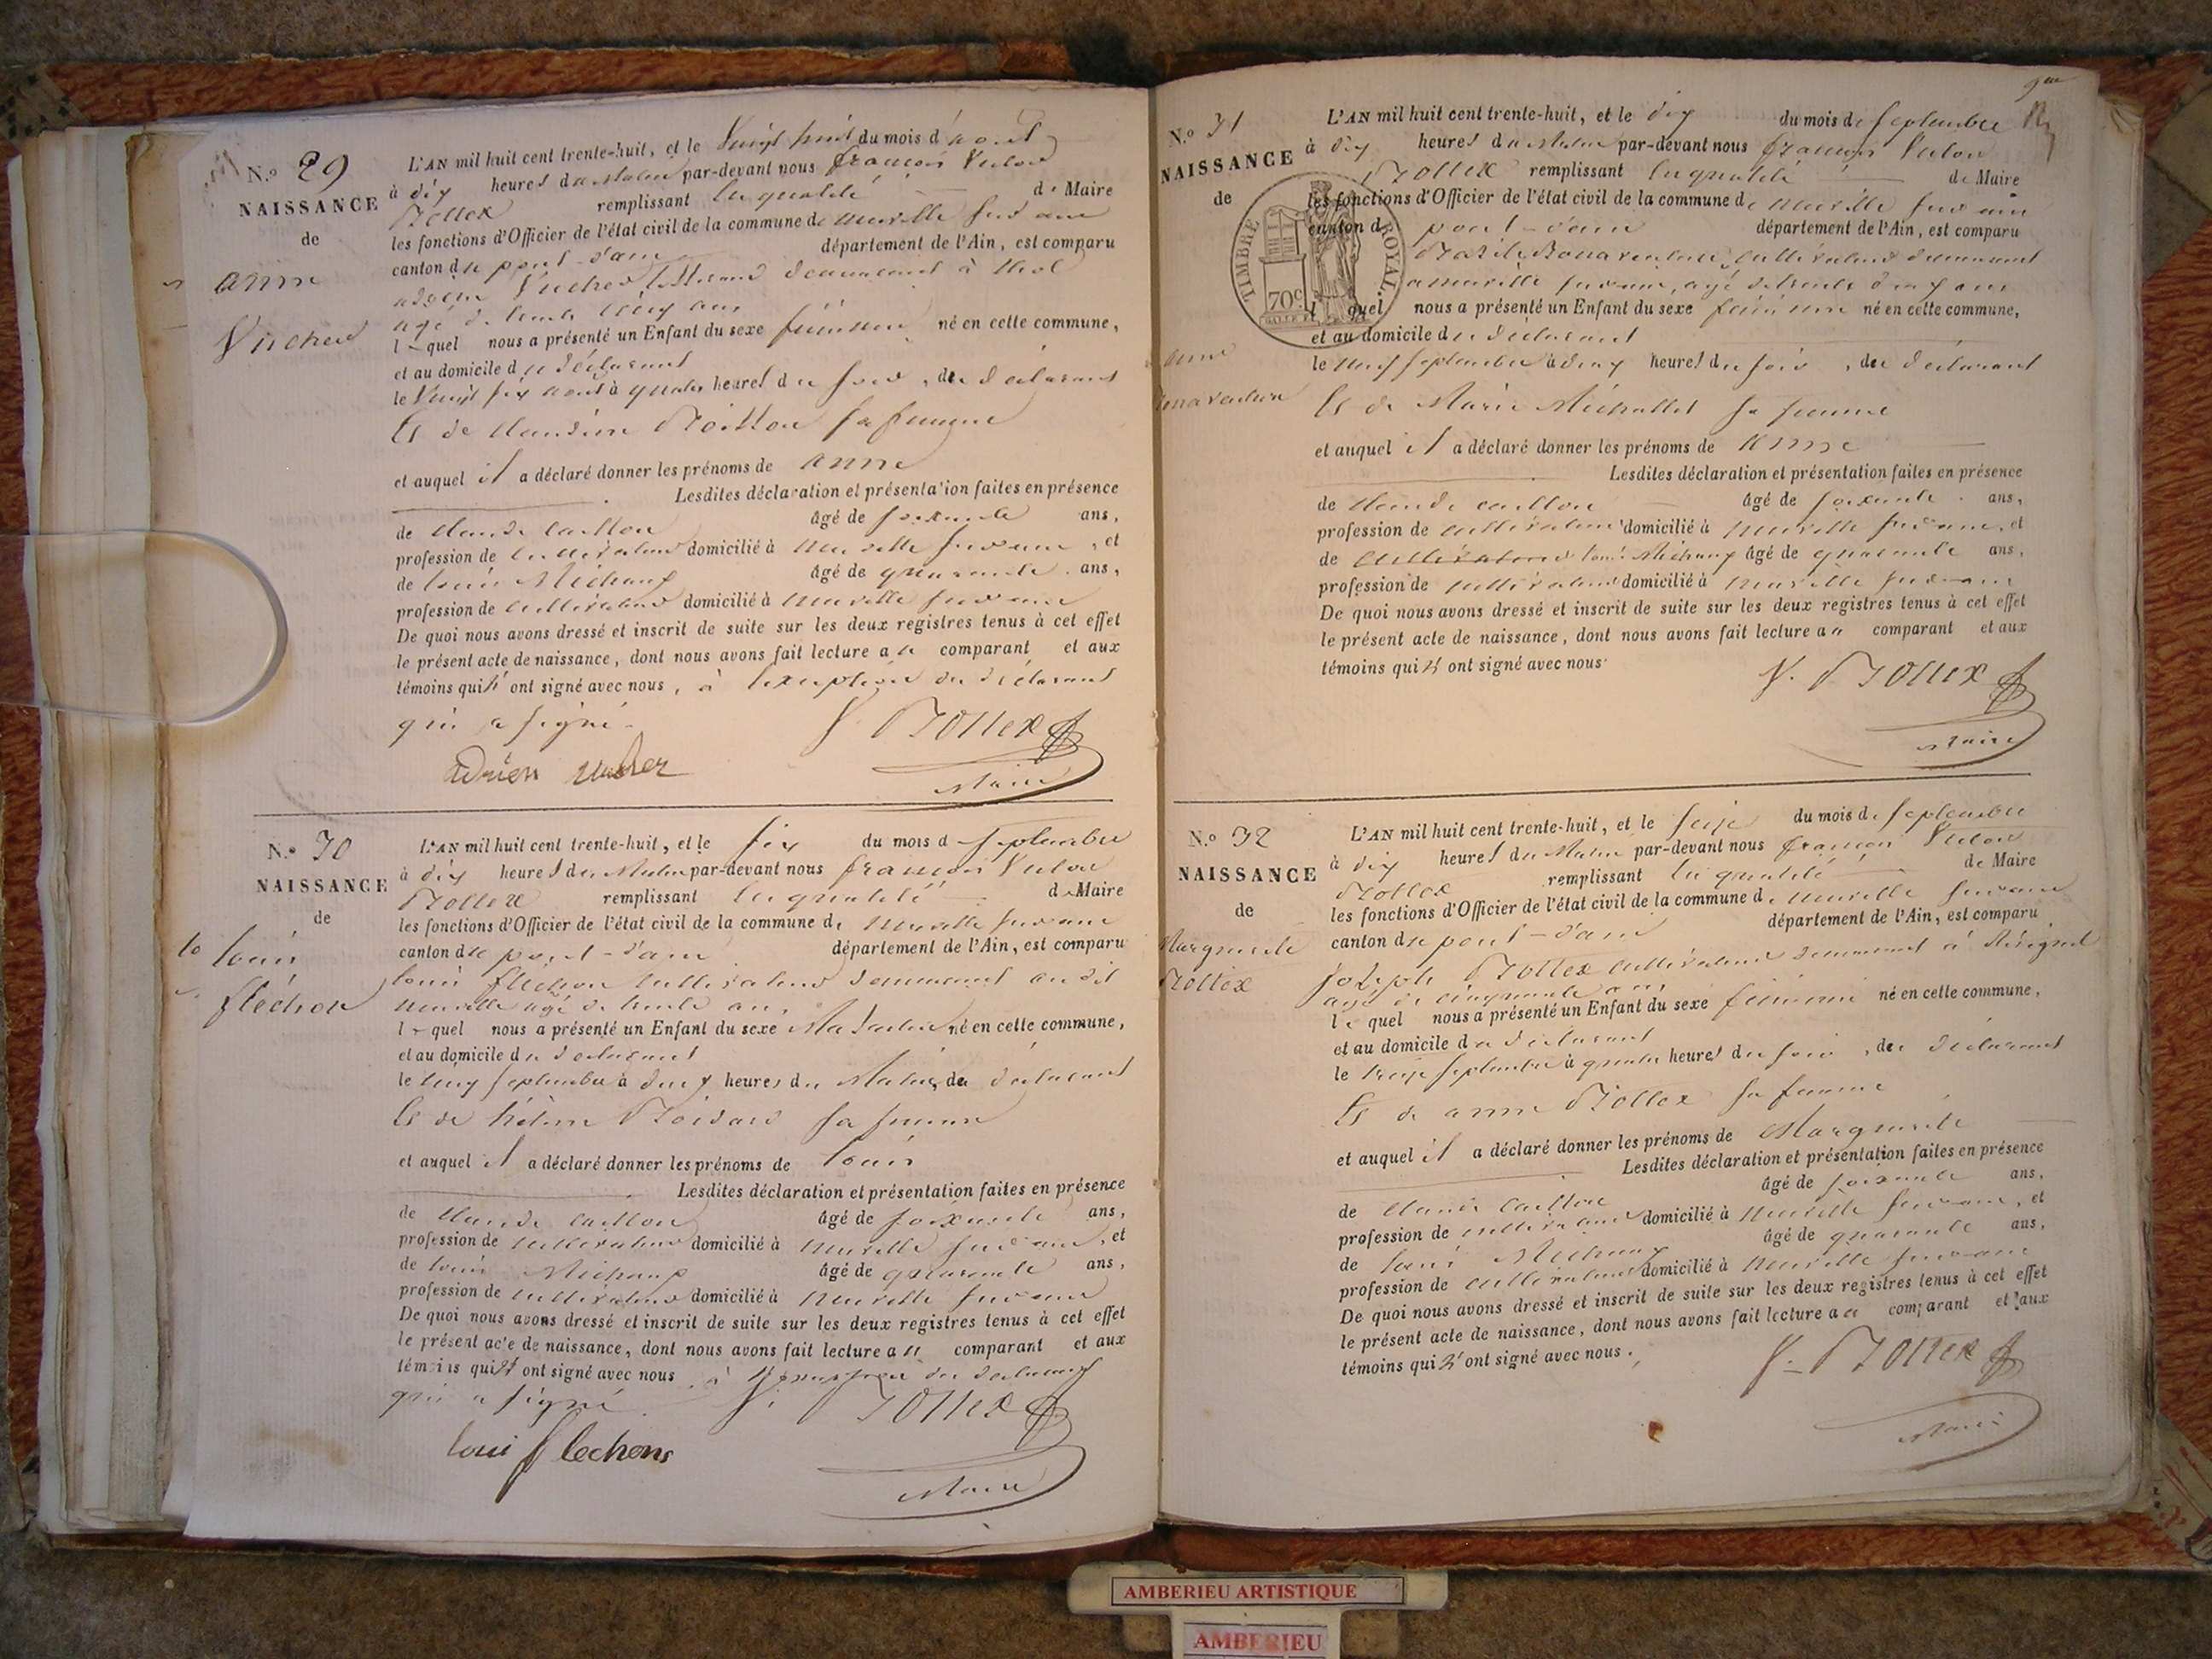 N.o 29
NAISSANCE
de
anne
Vucher
L'AN mil huit cent trente-huit, et le Vingt huit du mois d'aout
à dix heures du Matin par-devant nous françois Victor
Bottex remplissant en qualité de Maire
les fonctions d'Officier de l'état civil de la commune de neuville sur ain
canton de pont-d'ain département de l'Ain, est comparu
Vucher demeurant à
agé de trente cinq ans
lequel nous a présenté un Enfant du sexe féminin né en cette commune,
et au domicile du déclarant
le Vingt six aout à quatre heures du soir, du déclarant
Et de Claudine sa femme
et auquel il a déclaré donner les prénoms de anne
Lesdites déclaration et présentation faites en présence
de Claude caillon âgé de soixante ans,
profession de cultivateur domicilié à neuville sur ain, et
de louis Michaux âgé de quarante ans,
profession de cultivateur domicilié à neuville sur ain
De quoi nous avons dressé et inscrit de suite sur les deux registres tenus à cet effet
le présent acte de naissance, dont nous avons fait lecture au comparant et aux
témoins qui n'ont signé avec nous, à l'exception du déclarant
qui a signé
V. Bottex
adrien vucher
Maire
N.o 30
NAISSANCE
de
louis
fléchon
L'AN mil huit cent trente-huit, et le six du mois d septembre
à dix heures du Matin par-devant nous françois Victor
Bottex remplissant en qualité de Maire
les fonctions d'Officier de l'état civil de la commune de neuville sur ain
canton de pont-d'ain département de l'Ain, est comparu
louis fléchon cultivateur demeurant au dit
neuville agé de trente ans,
lequel nous a présenté un Enfant du sexe Masculin né en cette commune,
et au domicile du déclarant
le cinq septembre à deux heures du Matin, du déclarant
Et de hélène sa femme
et auquel il a déclaré donner les prénoms de louis
Lesdites déclaration et présentation faites en présence
de Claude caillon âgé de soixante ans,
profession de cultivateur domicilié à neuville sur ain, et
de louis Michaux âgé de quarante ans,
profession de cultivateur domicilié à neuville sur ain
De quoi nous avons dressé et inscrit de suite sur les deux registres tenus à cet effet
le présent acte de naissance, dont nous avons fait lecture au comparant et aux
témoins qui n'ont signé avec nous, à du déclarant
qui a signé
V. Bottex
loui flechons
Maire
N.o 31
NAISSANCE
de
anne
L'AN mil huit cent trente-huit, et le dix du mois de septembre
à dix heures du Matin par-devant nous françois Victor
Bottex remplissant en qualité de Maire
les fonctions d'Officier de l'état civil de la commune de neuville sur ain
canton de pont-d'ain département de l'Ain, est comparu
Bonaventure cultivateur demeurant
a neuville sur ain, agé de trente deux ans
lequel nous a présenté un Enfant du sexe féminin né en cette commune,
et au domicile du déclarant
le neuf septembre à deux heures du soir, du déclarant
Et de Marie Michallet sa femme
et auquel il a déclaré donner les prénoms de anne
Lesdites déclaration et présentation faites en présence
de Claude caillon âgé de soixante ans,
profession de cultivateur domicilié à neuville sur ain, et
de cultivateur louis Michaux âgé de quarante ans,
profession de cultivateur domicilié à neuville sur ain
De quoi nous avons dressé et inscrit de suite sur les deux registres tenus à cet effet
le présent acte de naissance, dont nous avons fait lecture au comparant et aux
témoins qui n'ont signé avec nous
V. Bottex
Maire
TIMBRE ROYAL.
70c
N.o 32
NAISSANCE
de
Marguerite
Bottex
L'AN mil huit cent trente-huit, et le seize du mois de septembre
à dix heures du Matin par-devant nous françois Victor
Bottex remplissant en qualité de Maire
les fonctions d'Officier de l'état civil de la commune de neuville sur ain
canton de pont-d'ain département de l'Ain, est comparu
joseph Bottex cultivateur demeurant à
agé de cinquante ans
lequel nous a présenté un Enfant du sexe féminin né en cette commune,
et au domicile du déclarant
le treize septembre à quatre heures du soir, du déclarant
Et de anne Bottex sa femme
et auquel il a déclaré donner les prénoms de Marguerite
Lesdites déclaration et présentation faites en présence
de Claude caillon âgé de soixante ans,
profession de cultivateur domicilié à neuville sur ain, et
de louis Michaux âgé de quarante ans,
profession de cultivateur domicilié à neuville sur ain
De quoi nous avons dressé et inscrit de suite sur les deux registres tenus à cet effet
le présent acte de naissance, dont nous avons fait lecture au comparant et aux
témoins qui n'ont signé avec nous.
V. Bottex
Maire
AMBERIEU ARTISTIQUE
AMBERIEU